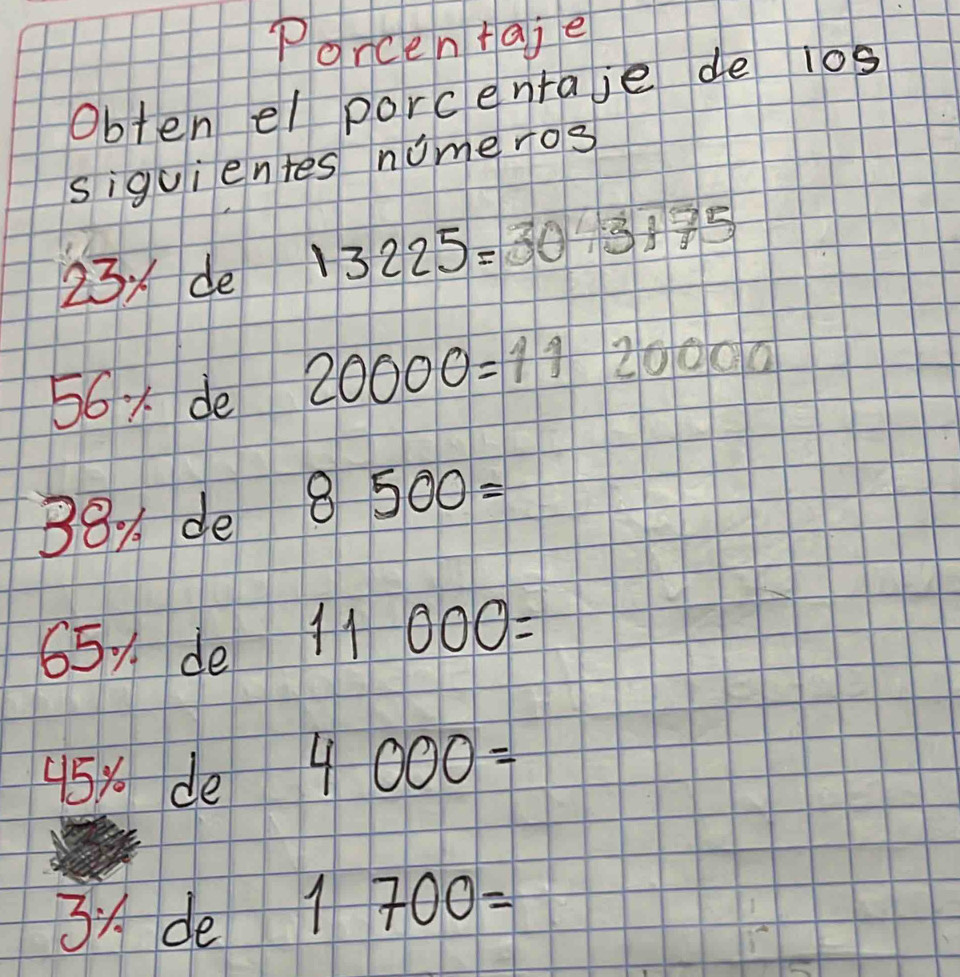 Porcentaje
Obten el porcentaje de los
siguientes números
23% de 13225=
56% de 20000=11 20000
38% de 8 500=
65% de 11 000=
45% de 4 000=
3% de 1 700=